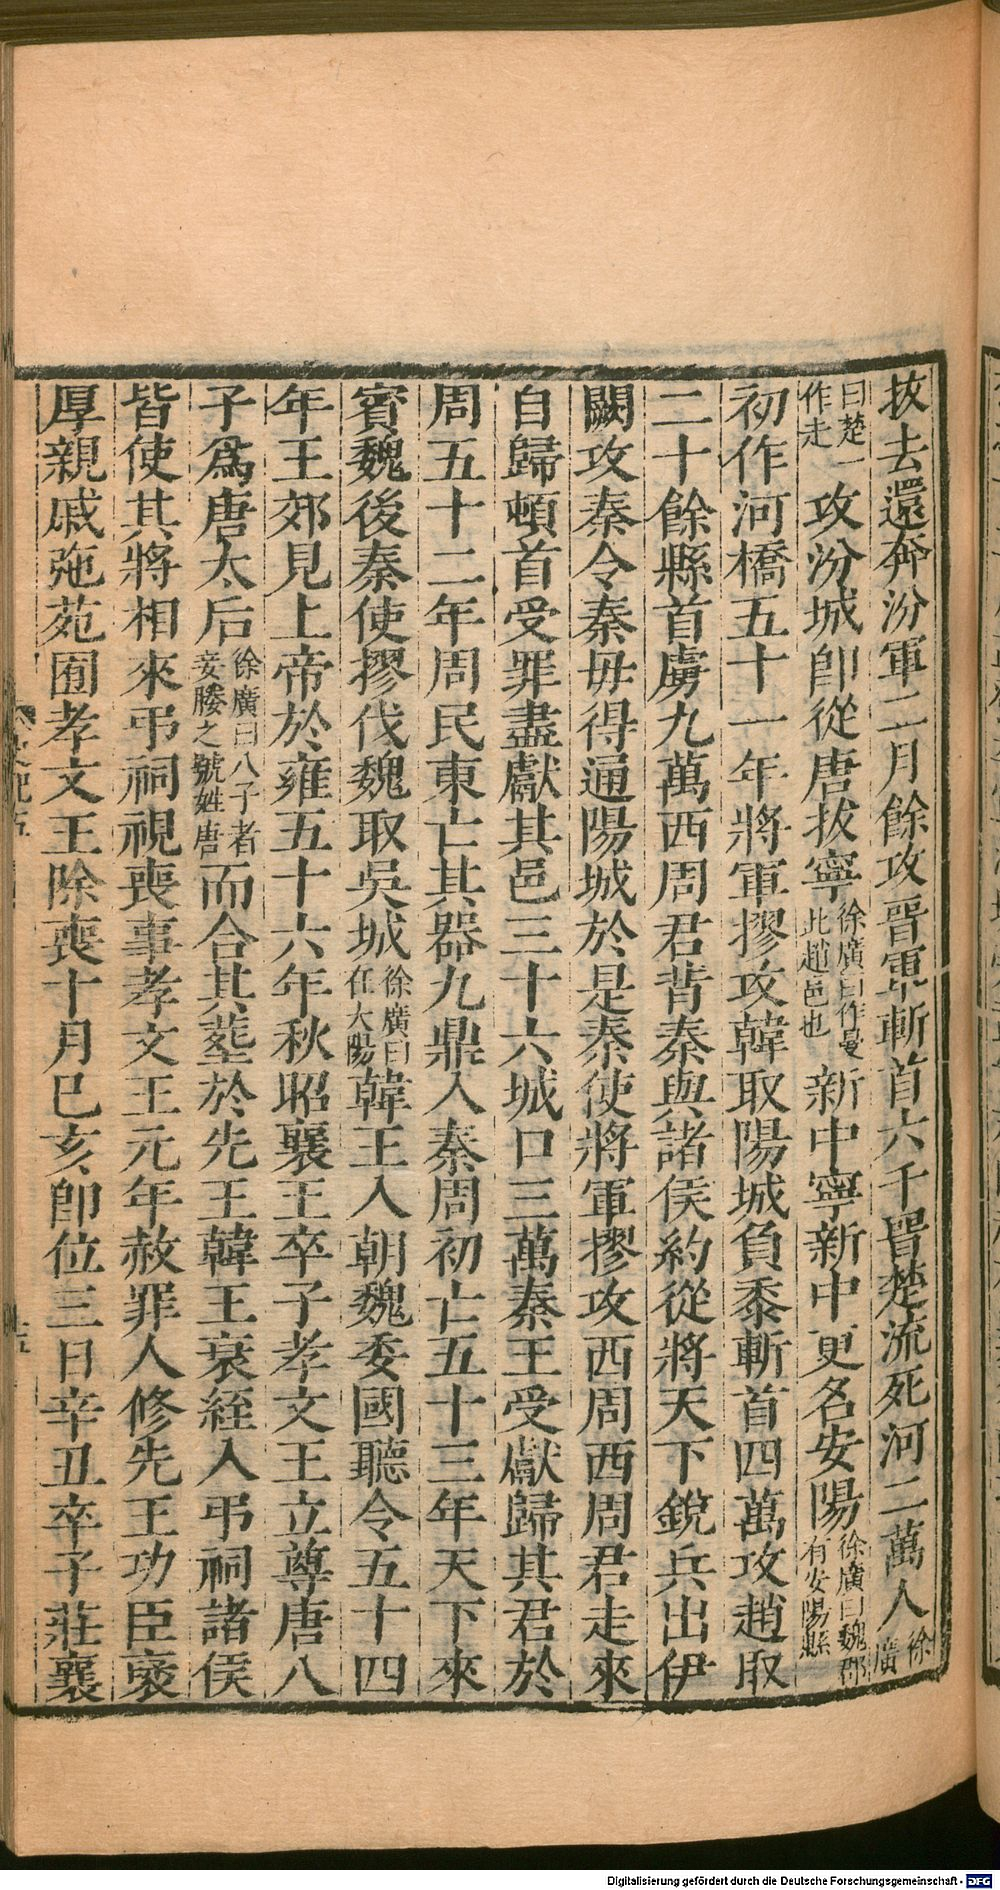 拔去還奔汾軍二月餘攻晉軍斬首六千晉楚流死河二萬人徐廣
曰楚一作走攻汾城即從唐拔寧徐廣曰一作曼此趙邑也新中寧新中更名安陽徐廣曰魏郡有安陽縣
初作河橋五十一年將軍摎攻韓取陽城負黍斬首四萬攻趙取
二十餘縣首虜九萬西周君背秦與諸侯約從將天下銳兵出伊
闕攻秦令秦毋得通陽城於是秦使將軍摎攻西周西周君走來
自歸頓首受罪盡獻其邑三十六城口三萬秦王受獻歸其君於
周五十二年周民東亡其器九鼎入秦周初亡五十三年天下來
賓魏後秦使摎伐魏取吳城徐廣曰在大陽韓王入朝魏委國聽令五十四
年王郊見上帝於雍五十六年秋昭襄王卒子孝文王立尊唐八
子爲唐太后徐廣曰八子者妾媵之號姓唐而合其葬於先王韓王衰絰入弔祠諸侯
皆使其將相來弔祠視喪事孝文王元年赦罪人修先王功臣襃
厚親戚弛苑囿孝文王除喪十月巳亥即位三日辛丑卒子莊襄
Digitalisierung gefördert durch die Deutsche Forschungsgemeinschaft - DFG